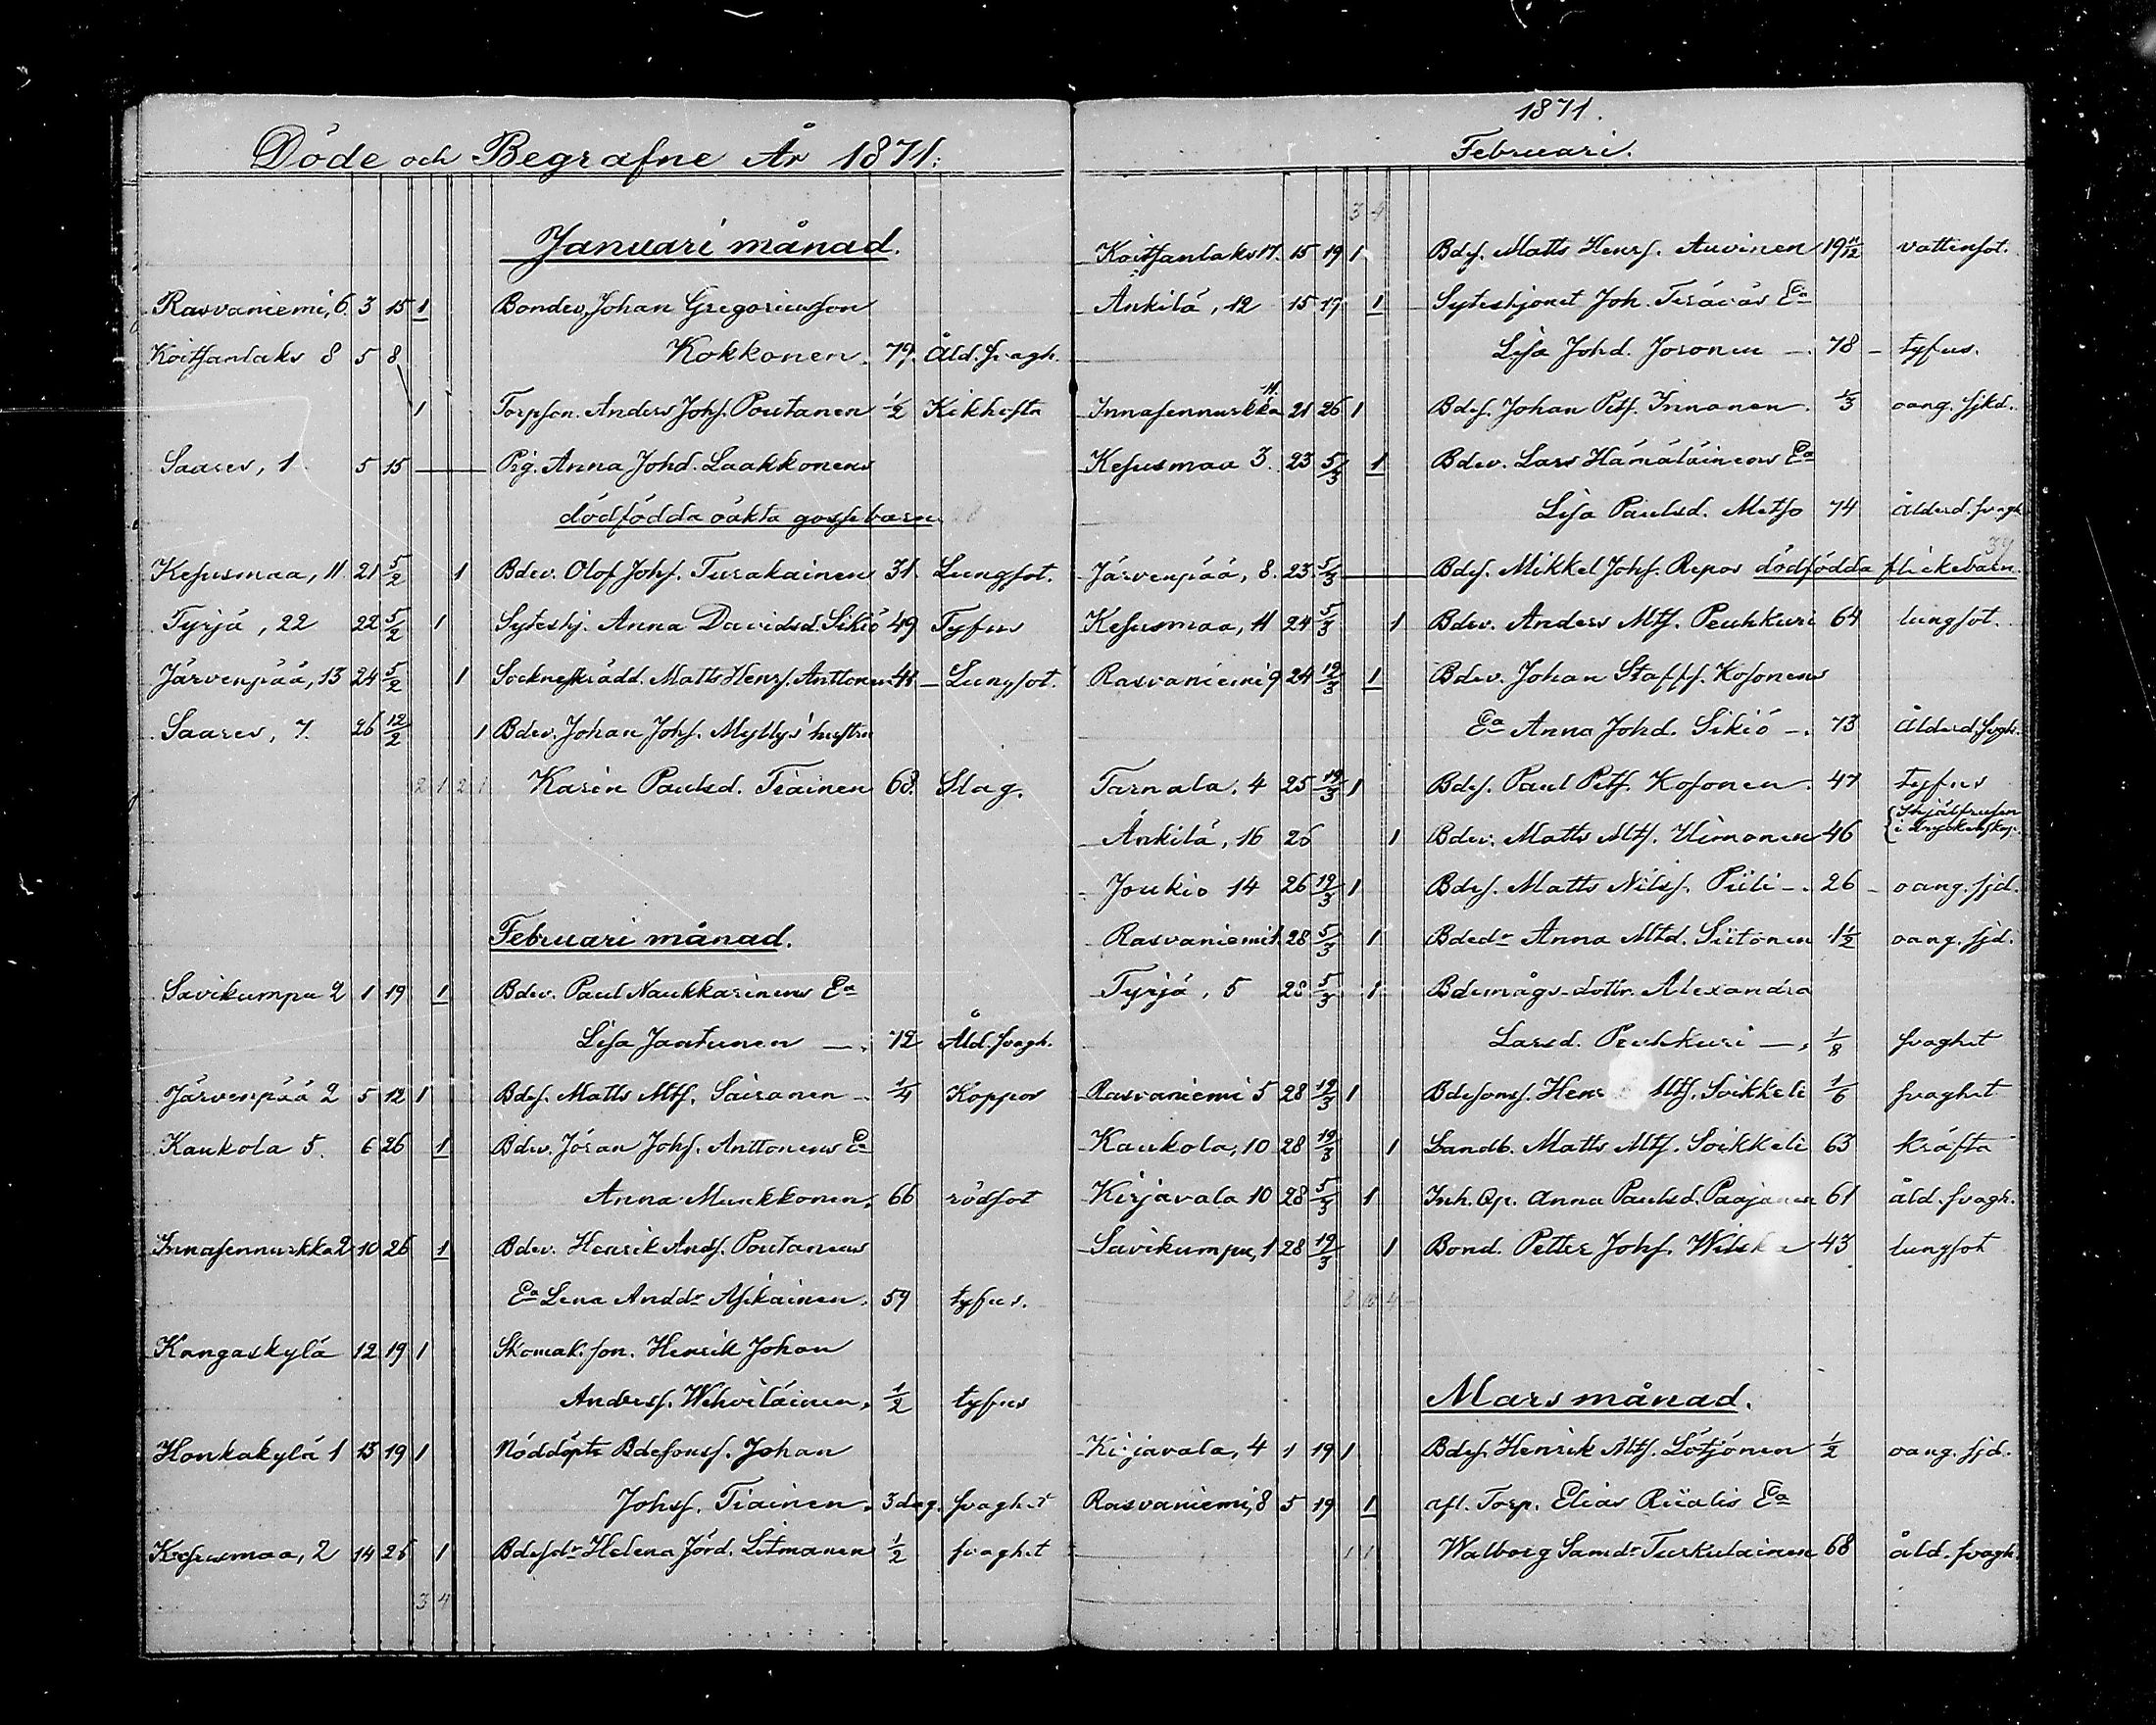 Döde och Begrafne År 1871.
Januari månad.
Rasvaniemi, 6. 3 15 1 Bondev. Johan Gregoriusson
Koitsanlaks 8 5 8 Kokkonen. 79. Åld. svagh.
1 Torpson. Anders Johs. Poutanen 1/2 Kikhosta
Saares, 1 5 15 — Pig. Anna Johd. Laakkonens
dödfödda oäkta gossebarn
Kesusmaa, 11. 21 5/2 1 Bdev. Olof Johs. Turakainen 31. Lungsot.
Tyrjä, 22 22 5/2 1 Syteshj. Anna Davidsd. Sikiö 49 Tyfus
Järvenpää, 13 24 5/2 1 Sockneskrädd. Matts Henrs. Anttonen 41 – Lungsot.
Saares, 7. 26 12/2 1 Bdev. Johan Johs. Myllys' hustru
2 1 2 1 Karin Paulsd. Tiainen 68. Slag.
Februari månad.
Savikumpu 2 1 19 1 Bdev. Paul Naukkarinens Ea
Lisa Jantunen —. 72 Åld. svagh.
Järvenpää 2 5 12 1 Bdes. Matts Mts. Sairanen – 1/4 Koppor
Kaukola 5. 6 26 1 Bdev. Jöran Johs. Anttonens Ea
Anna Munkkonen. 66 rödsot
Innasennurkka 2 10 26 1 Bdev. Henrik Ands. Poutanens
Ea Lena Anddr Asikainen. 59 tyfus.
Kangaskylä 12 19 1 Skomak. son. Henrik Johan
Anders. Wehviläinen. 1/2 tyfus
Honkakylä 1 13 19 1 Nöddöpte Bdesons. Johan
Johs. Tiainen. 3 dag. svaghet
Kesusmaa, 2 14 26 1 Bdesdr Helena Jörd. Litmanen 1/2 svaghet
3 4
1871.
Februari.
3 4
Koitsanlaks 17. 15 19 1 Bdes. Matts Henrs. Auvinen 19 11/12 vattensot.
Änkilä, 12 15 19 1 Syteshjonet Joh. Teräväs Ea
Lisa Johd. Joronen —. 78 – tyfus.
Innasennurkka 11. 21 26 1 Bdes. Johan Pets. Innanen. 1/3 oang. sjkd.
Kesusmaa 3. 23 5/3 1 Bdev. Lars Hämäläinens Ea
Lisa Paulsd. Metso 74 Ålderd. svagh
Järvenpää, 8. 23. 5/3 — Bdes. Mikkel Johs. Repos dödfödda flickebarn.
Kesusmaa, 11 24 5/3 1 Bdev. Anders Mts. Peuhkuri 64 lungsot.
Rasvaniemi 9 24 19/3 1 Bdev. Johan Staffs. Kosonens
Ea Anna Johd. Sikiö –. 73 Ålderd. svgh.
Tarnala, 4 25 19/3 1 Bdes. Paul Pets. Kosonen. 47 tyfus
Änkilä, 16 26 1 Bdev. Matts Mts. Uimonen 46 {Ihjälfrusen i dryckenskap.
Joukio 14 26 19/3 1 Bdes. Matts Nilss. Piili –. 26 – oang. sjd.
Rasvaniemi 1. 28 5/3 1 Bdedr Anna Mtd. Siitonen 1 1/2 oang. sjd.
Tyrjä, 5 28 5/3 1 Bdemågs-dottr. Alexandra
Larsd. Peuhkuri —, 1/8 svaghet
Rasvaniemi 5 28 19/3 1 Bdesons. Henr Mts. Soikkeli 1/6 svaghet
Kaukola, 10 28 19/3 1 Landb. Matts Mts. Soikkeli 63 kräfta
Kirjavala 10 28 5/3 1 Inh. Qp. Anna Paulsd. Paajanen 61 åld. svagh.
Savikumpu, 1 28 19/3 1 Bond. Petter Johs. Wilska 43 lungsot
8 10 4
Mars månad.
Kirjavala, 4 1 19 1 Bdes. Henrik Mts. Lötjönen 1/2 oang. sjd.
Rasvaniemi, 8 5 19 1 afl. Torp. Elias Riialis Ea
1 1 Walborg Samdr Turkulainen 68 åld. svagh.